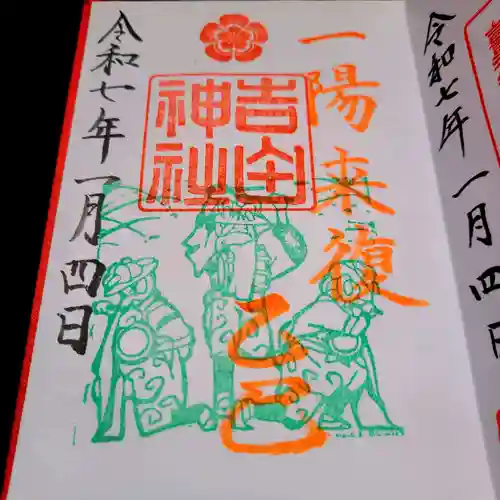 一陽来復
乙巳
吉田
神社
令和七年一月四日
令和七年一月四日